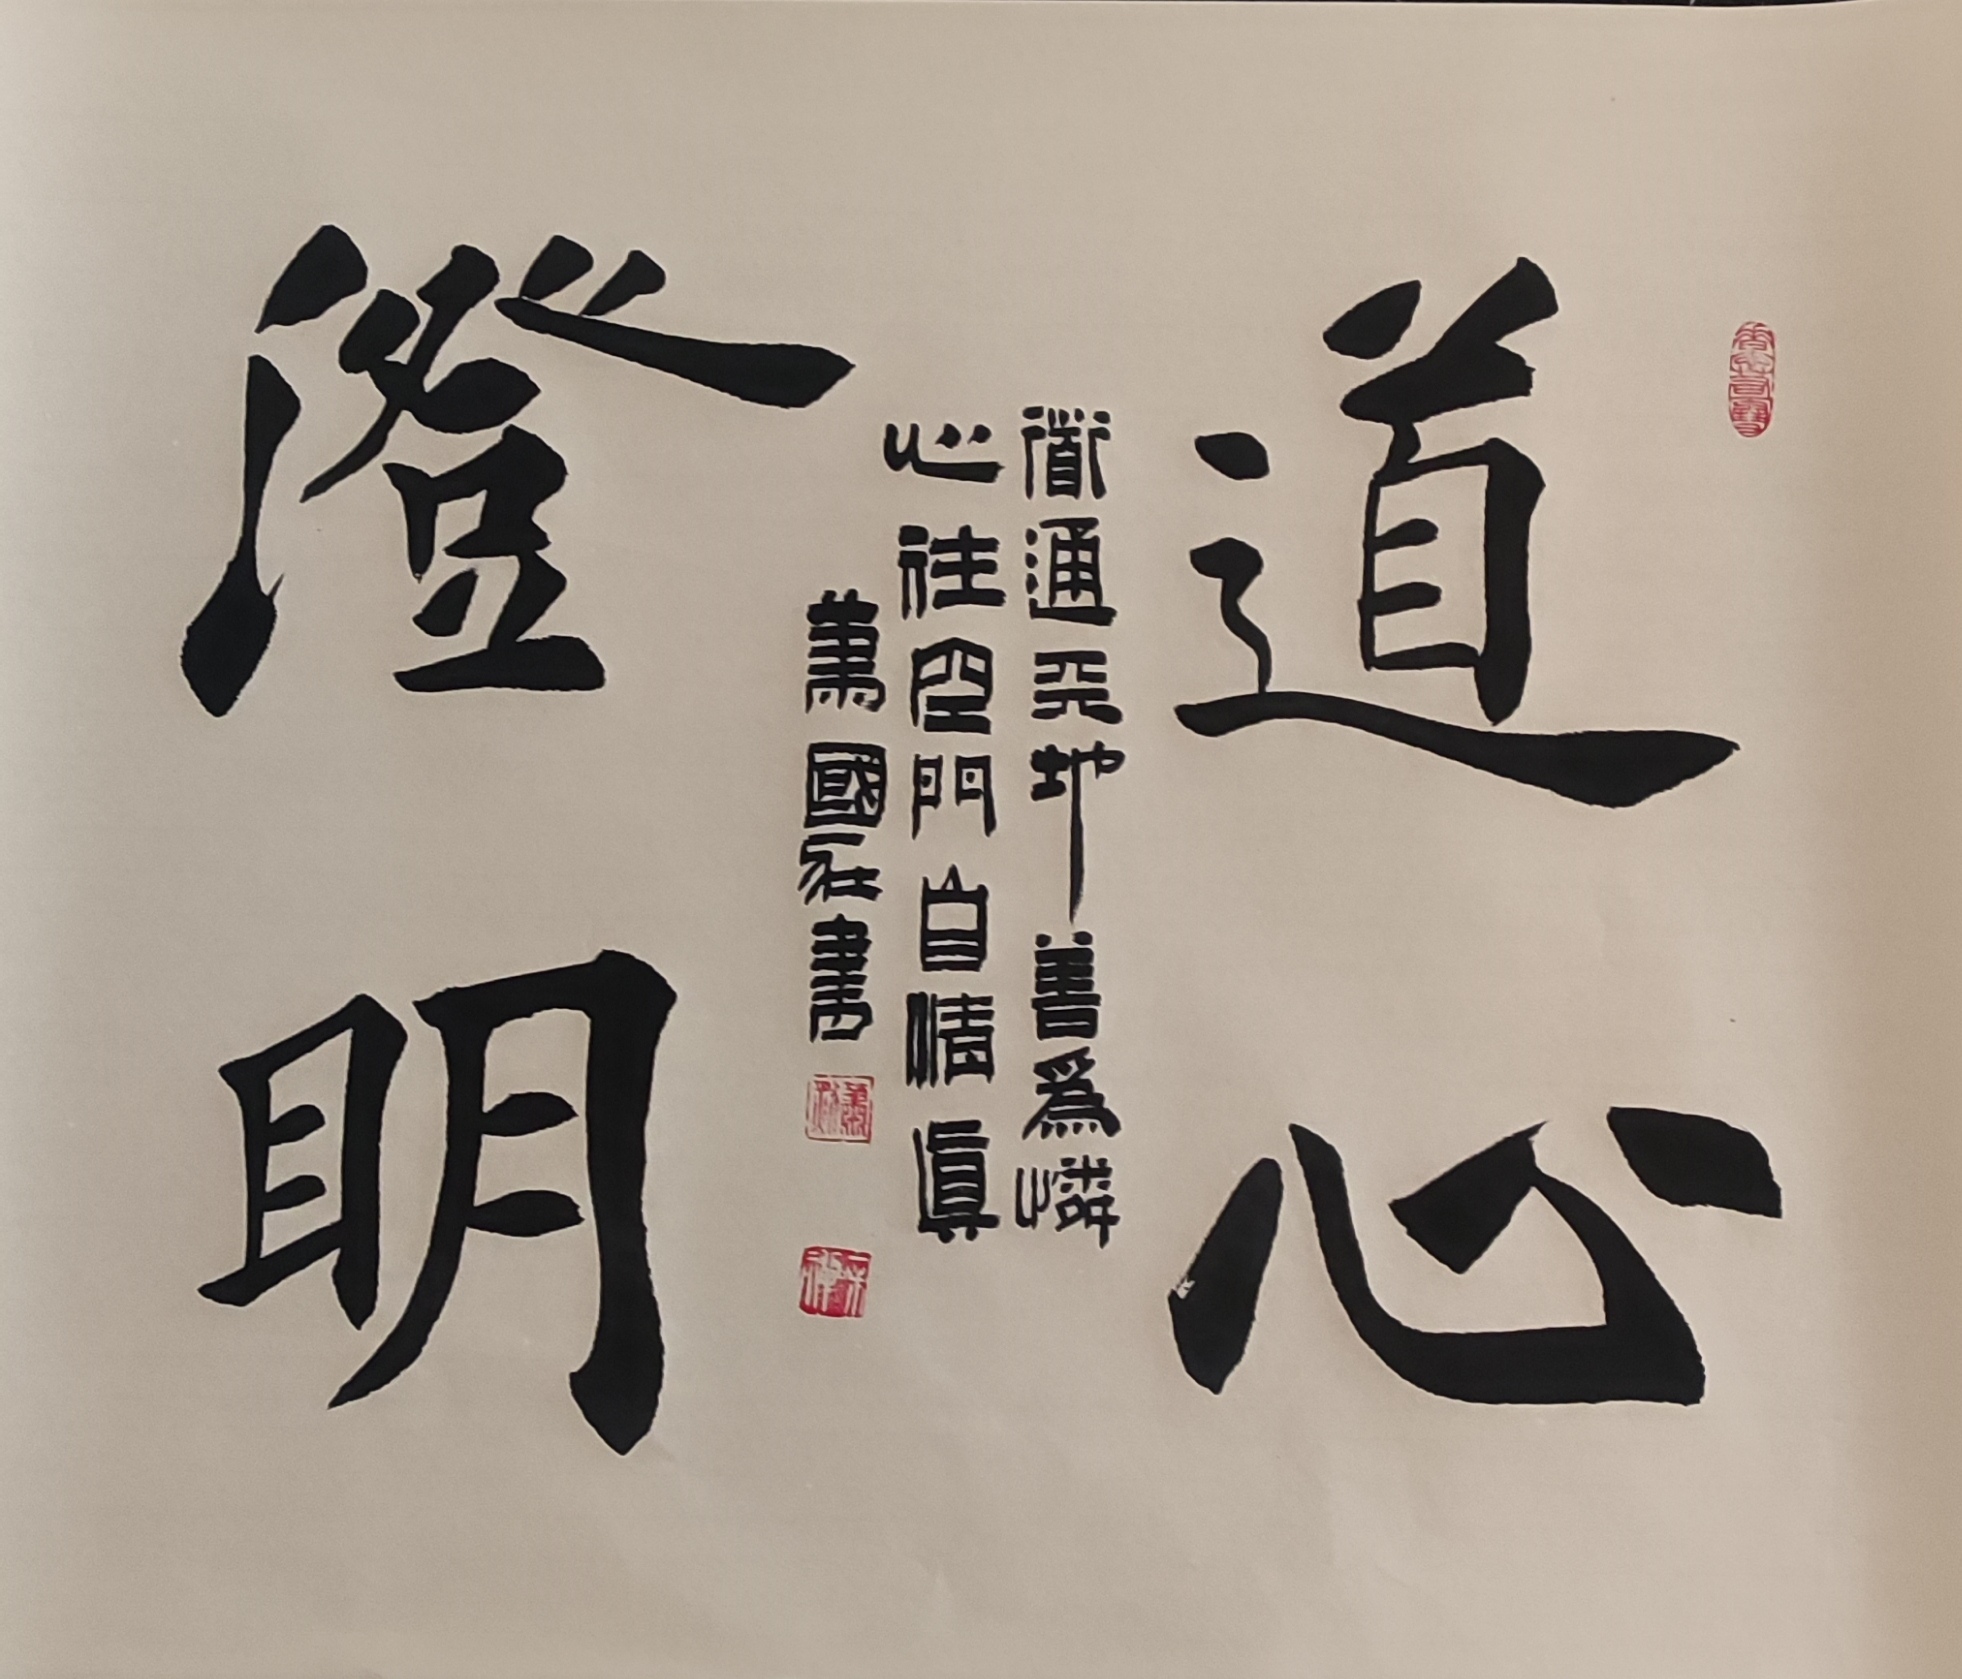 道心
澄明
衜通天地善為憐
心往空門自情真
蕭國在書